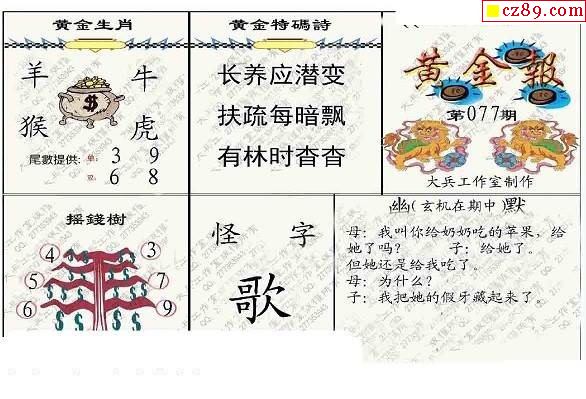 cz89.com
黄金生肖
羊 牛
猴 虎
尾數提供: 单: 3 9
双: 6 8
黄金特碼詩
长养应潜变
扶疏每暗飘
有林时杳杳
黄金報
第077期
大兵工作室制作
摇錢樹
4
3
5
7
6
9
怪 字
歌
幽(玄机在期中)默
母：我叫你给奶奶吃的苹果，给
她了吗？ 子：给她了。
但她还是给我吃了。
母：为什么？
子：我把她的假牙藏起来了。